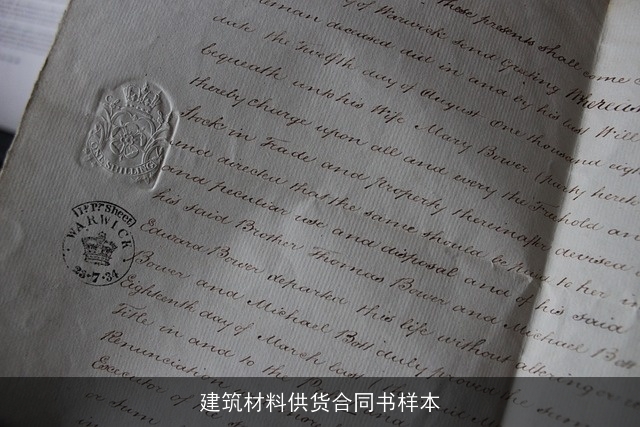 of Warwick send Greeting Whereas
deceased did in and by his last Will
date the Twelfth day of August One thousand eigh
bequeath unto his Wife Mary Bower
thereby charge upon all and every the Freehold an
Stock in Trade and property thereinafter devised
and directed that the same should be paid to her
and peculiar use and disposal and of his said
his said Brother Thomas Bower and Michael Bott
Edward Bower departed this life without altering or
Bower and Michael Bott duly proved the same
Eighteenth day of March last
Title in and to the
Renunciation
Executor of the
or Sum
ONE SHILLING
Pr Sheet
WARWICK
23·7·34
建筑材料供货合同书样本